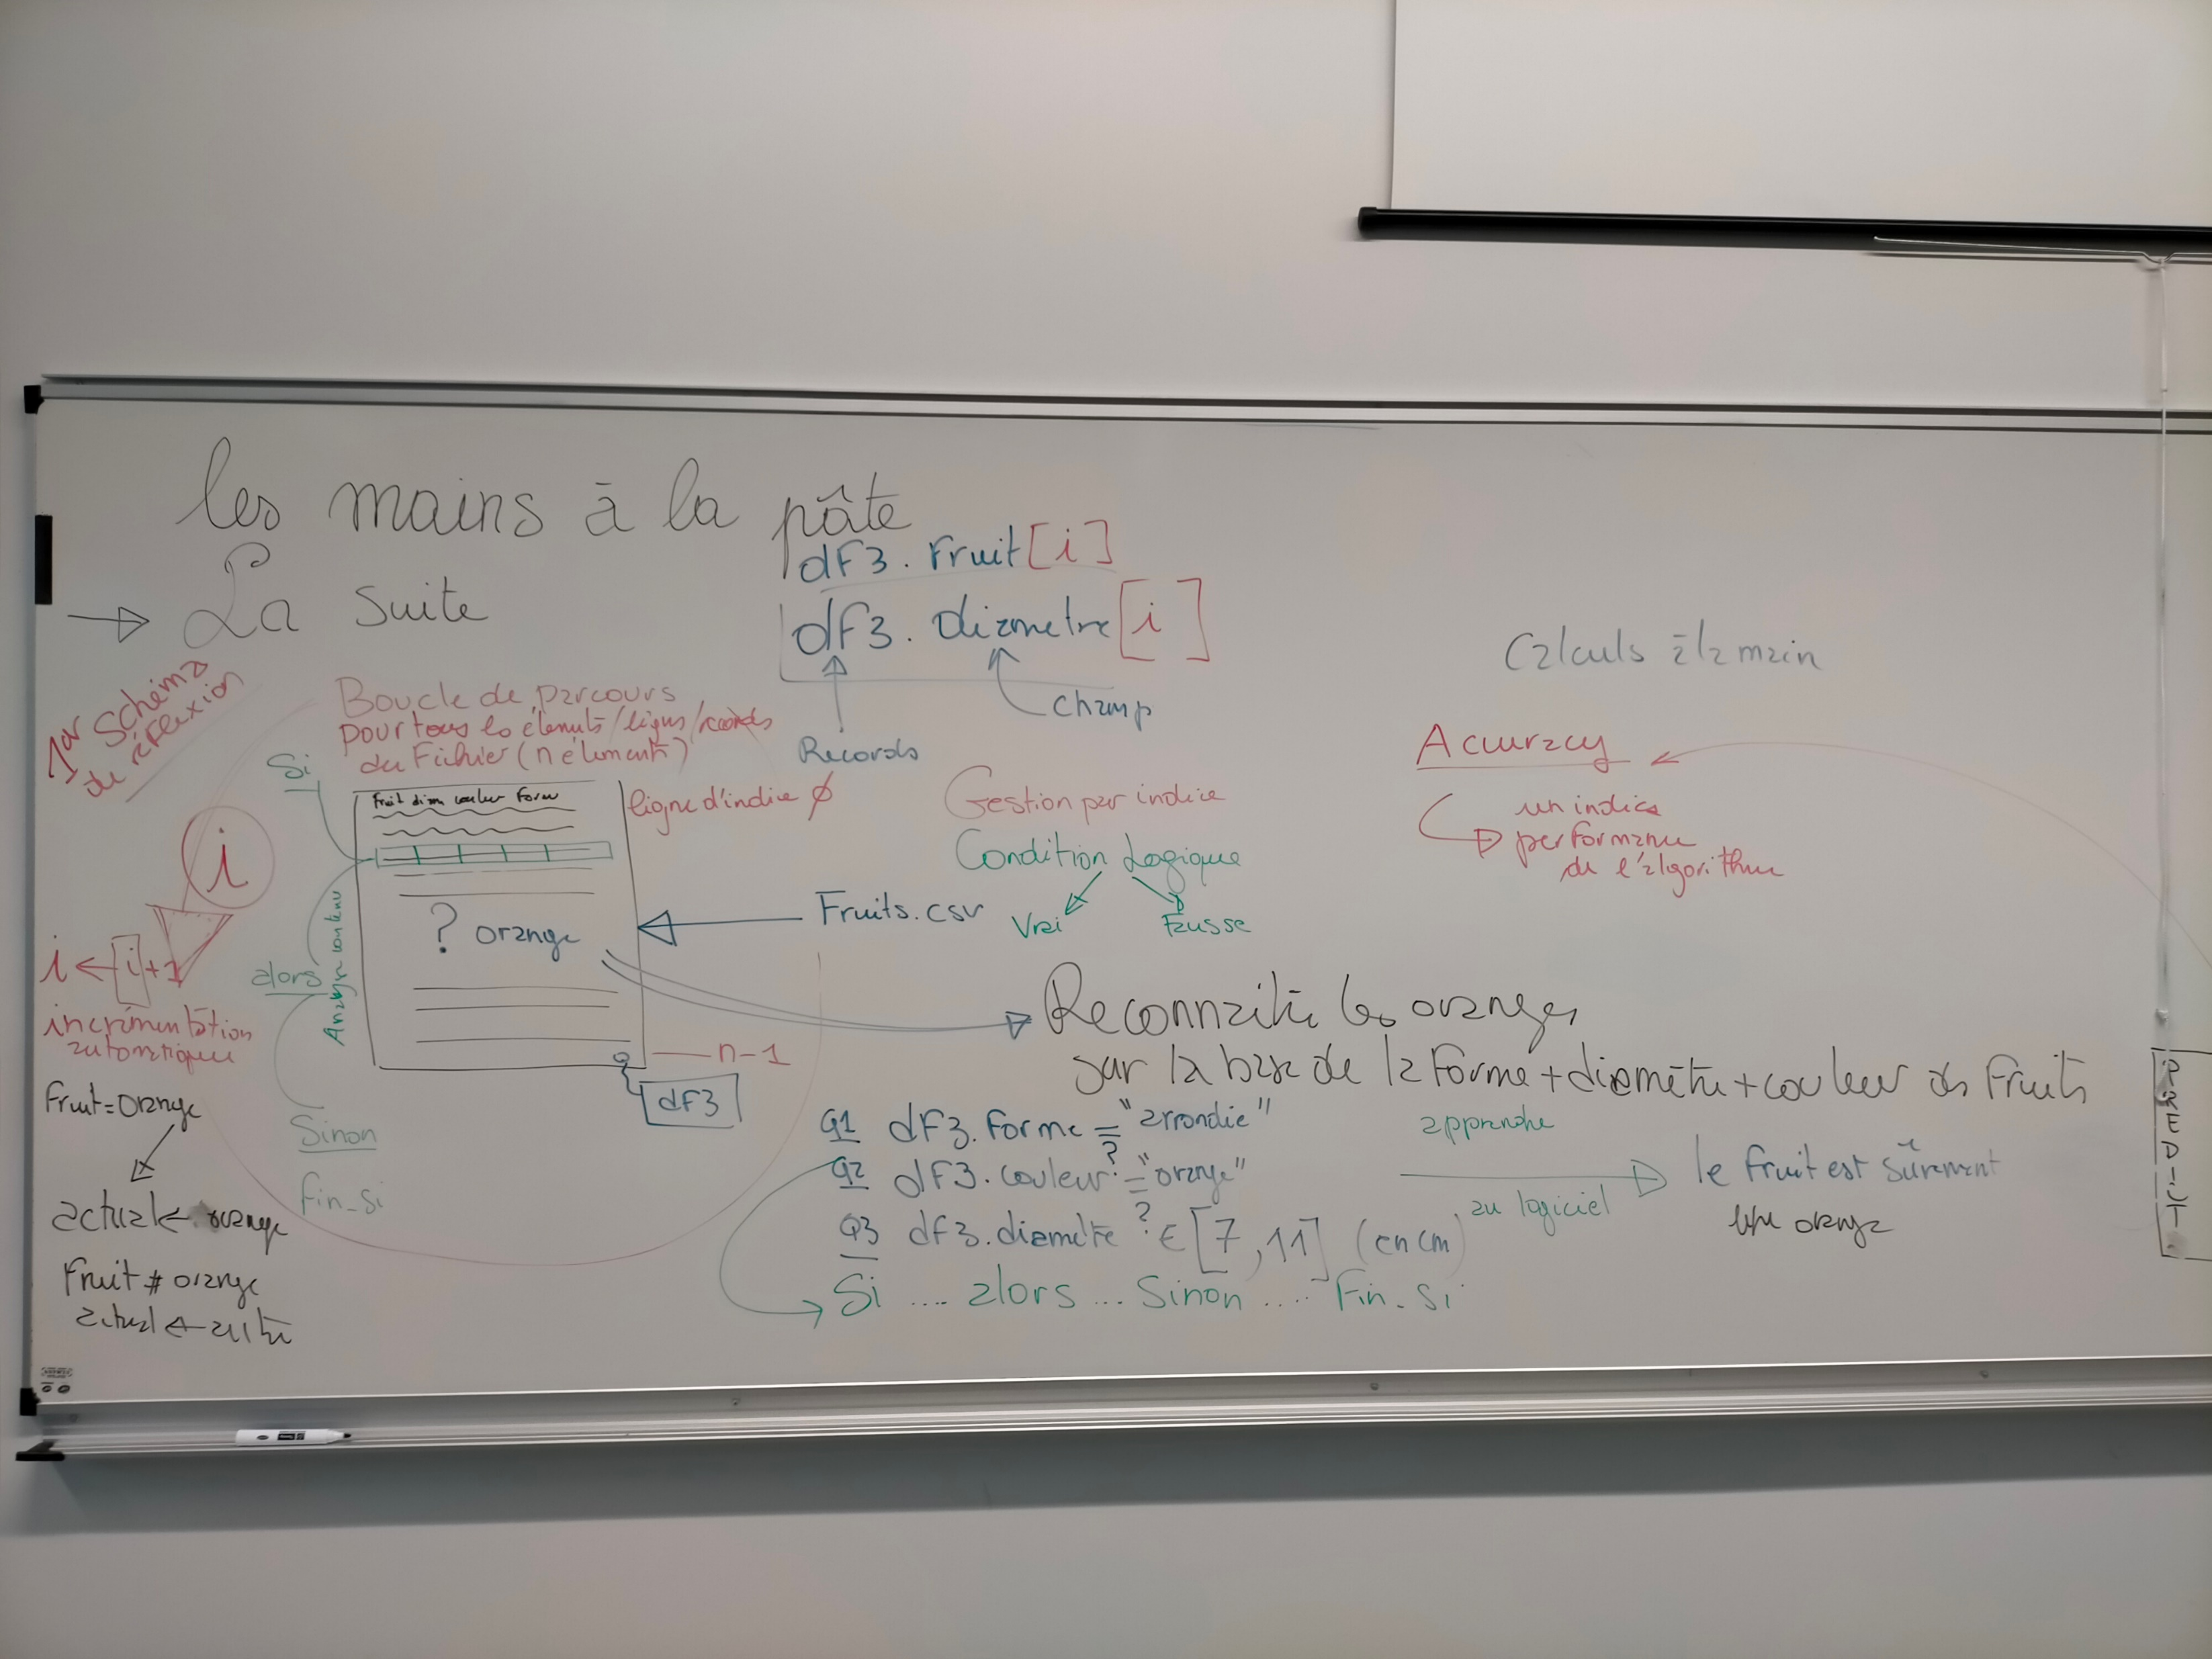 les mains à la pâte
→ La suite
df3.Fruit[i]
df3.diametre[i]
Records
Champ
1er schéma
de réflexion
Boucle de parcours
pour tous les éléments/lignes/records
du Fichier (n éléments)
Si
Fruit diam couleur Forme
ligne d'indice ∅
i
i ← i+1
incrémentation
automatique
alors
Analyse contenu
? orange
Fruits.csv
n-1
df3
Sinon
Fin_si
Fruit = Orange
actual ← orange
Fruit # orange
actual ← autre
Gestion par indice
Condition Logique
Vrai
Fausse
Calculs à la main
Accuracy
un indice
performance
de l'algorithme
Reconnaitre les oranges
sur la base de la Forme + diamètre + couleur des Fruits
Q1 df3.Forme =? "arrondie"
Q2 df3.couleur =? "orange"
Q3 df3.diametre ?∈ [7,11] (en cm)
Si .... alors ... Sinon ..... Fin_Si
apprendre
au logiciel
le Fruit est sûrement
une orange
PREDICT